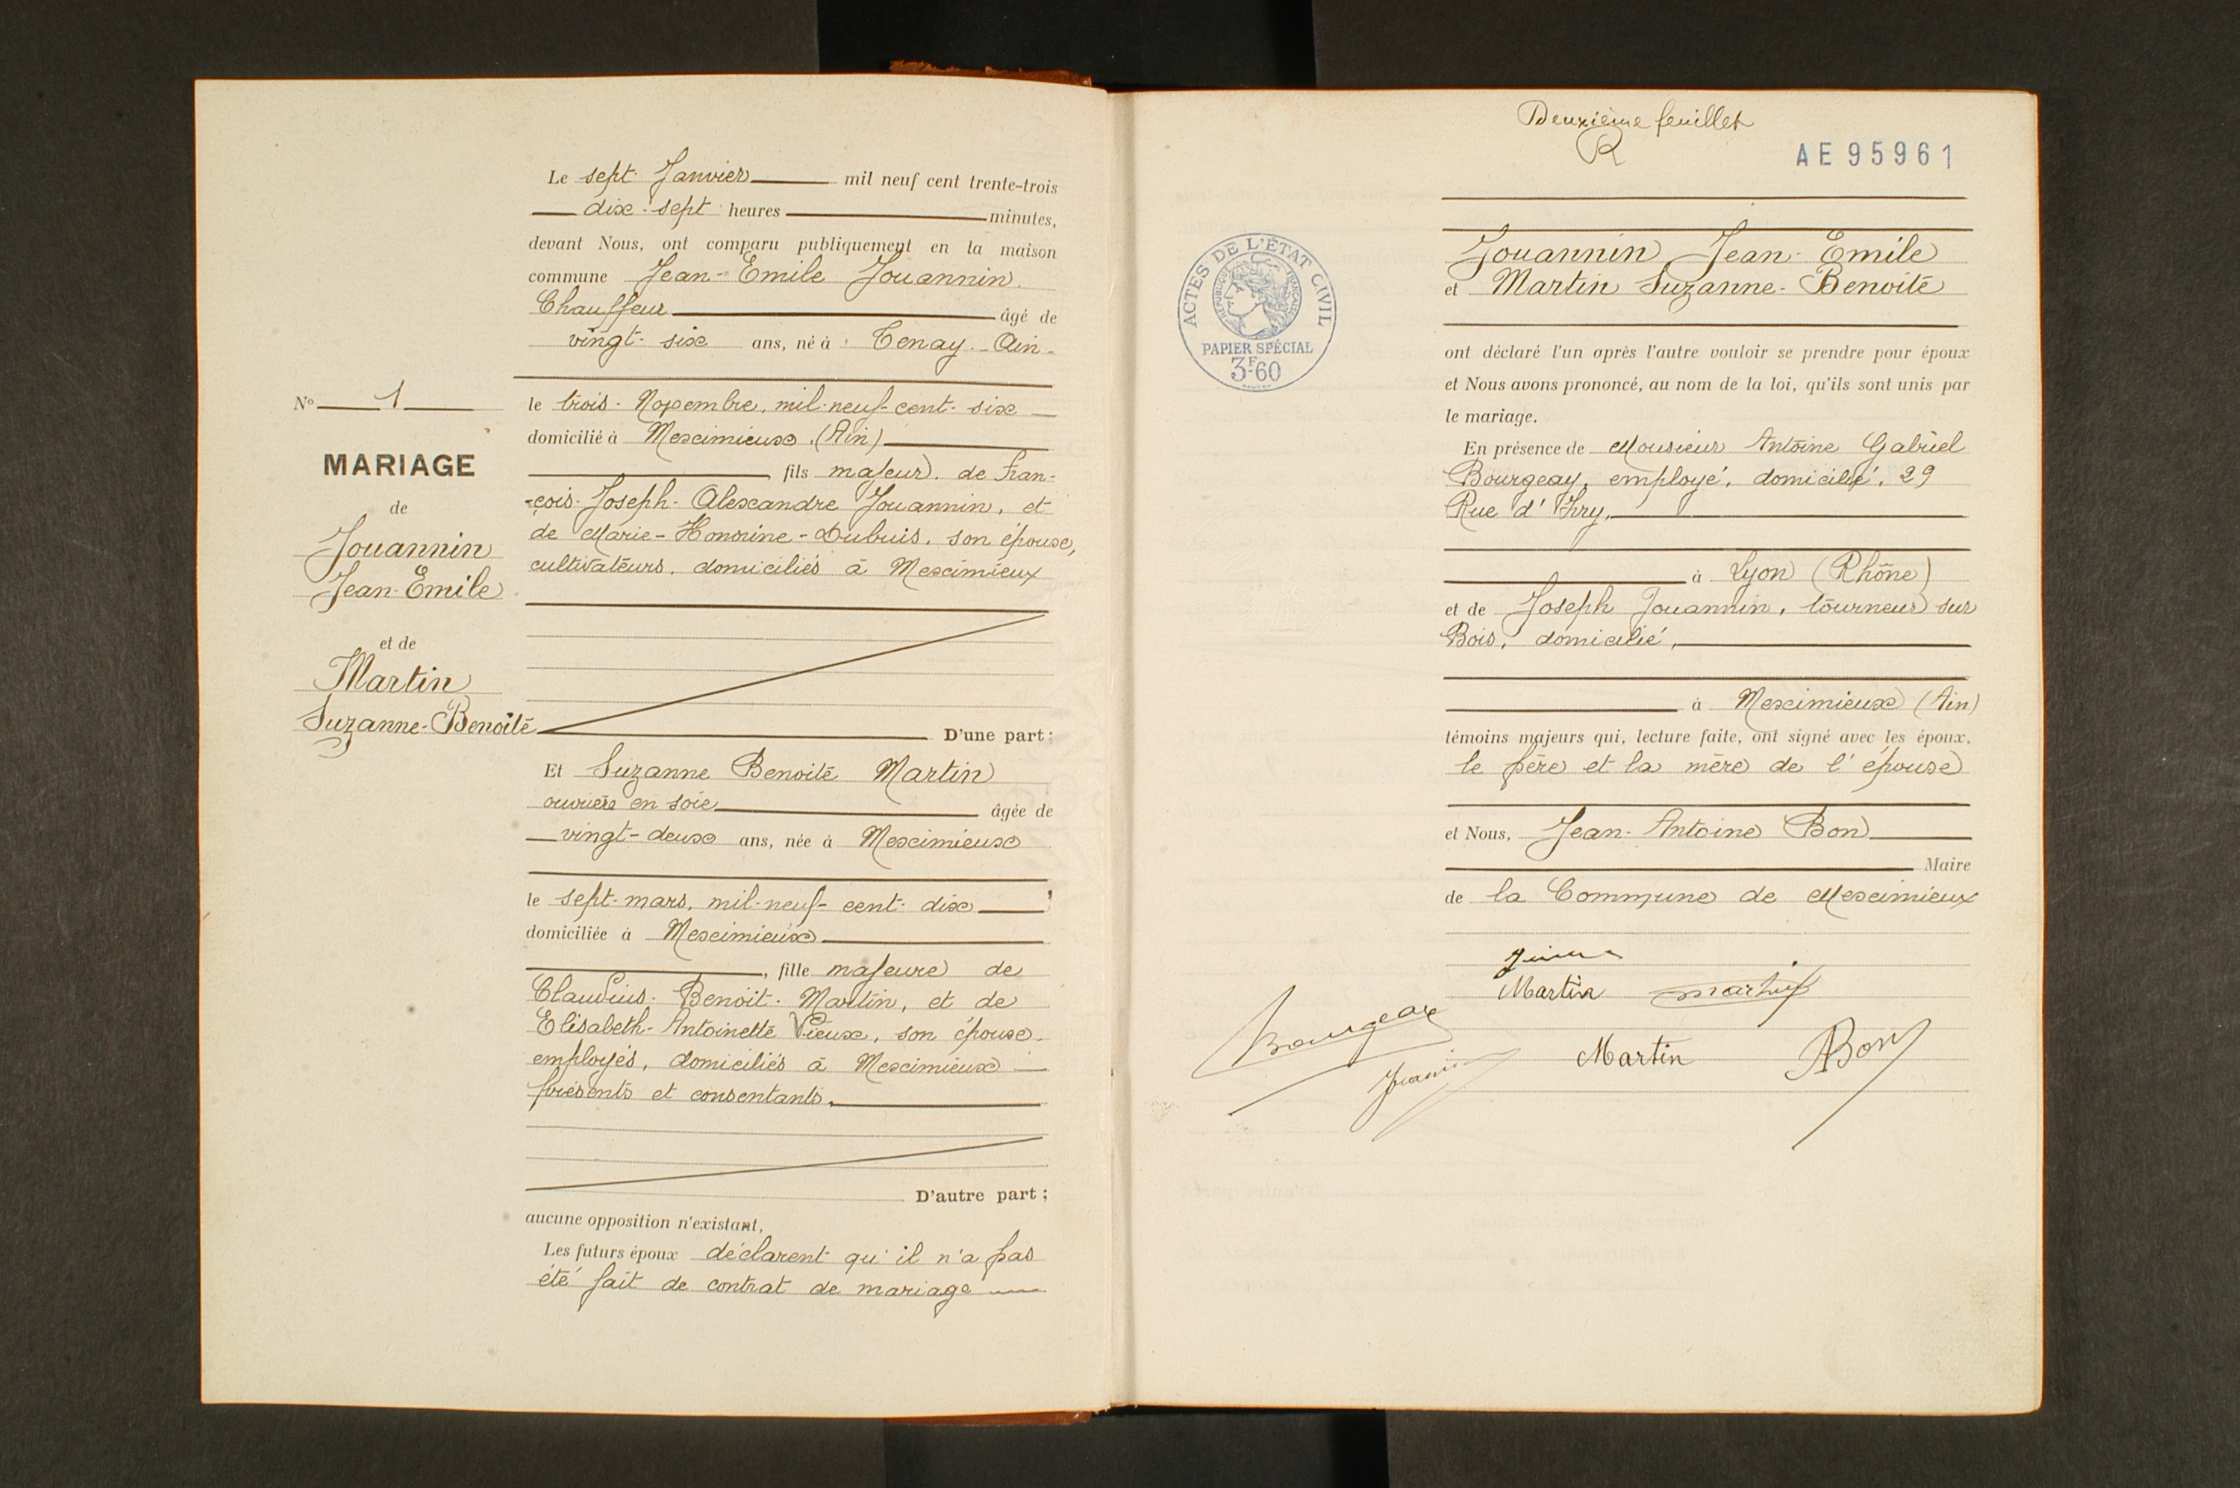 Le sept Janvier mil neuf cent trente-trois
dix-sept heures minutes,
devant Nous, ont comparu publiquement en la maison
commune Jean-Emile Jouannin.
Chauffeur âgé de
vingt-six ans, né à Tenay. Ain.
le trois Novembre, mil-neuf-cent-six
domicilié à Meximieux (Ain)
fils majeur de Fran-
-çois-Joseph-Alexandre Jouannin, et
de Marie-Honorine-Dubuis, son épouse,
cultivateurs, domiciliés à Meximieux
D'une part:
N° 1
MARIAGE
de
Jouannin
Jean-Emile
et de
Martin
Suzanne-Benoîte
Et Suzanne Benoîte Martin
ouvrière en soie âgée de
vingt-deux ans, née à Meximieux
le sept-mars, mil-neuf-cent-dix
domiciliée à Meximieux
, fille majeure de
Claudius-Benoît-Martin, et de
Elisabeth-Antoinette Vieux, son épouse
employés, domiciliés à Meximieux
présents et consentants.
D'autre part;
aucune opposition n'existant,
Les futurs époux déclarent qu'il n'a pas
été fait de contrat de mariage
Deuxième feuillet
R
AE95961
ACTES DE L'ÉTAT CIVIL
RÉPUBLIQUE FRANÇAISE
PAPIER SPÉCIAL
3F.60
Jouannin Jean-Emile
et Martin Suzanne-Benoîte
ont déclaré l'un après l'autre vouloir se prendre pour époux
et Nous avons prononcé, au nom de la loi, qu'ils sont unis par
le mariage.
En présence de Monsieur Antoine Gabriel
Bourgeay, employé, domicilié, 29
Rue d'Ivry,
à Lyon (Rhône)
et de Joseph Jouannin, tourneur sur
Bois, domicilié,
à Meximieux (Ain)
témoins majeurs qui, lecture faite, ont signé avec les époux,
le père et la mère de l'épouse
et Nous, Jean-Antoine Bon
Maire
de la Commune de Meximieux
Martin Martin
Bourgeay
Martin
ABon